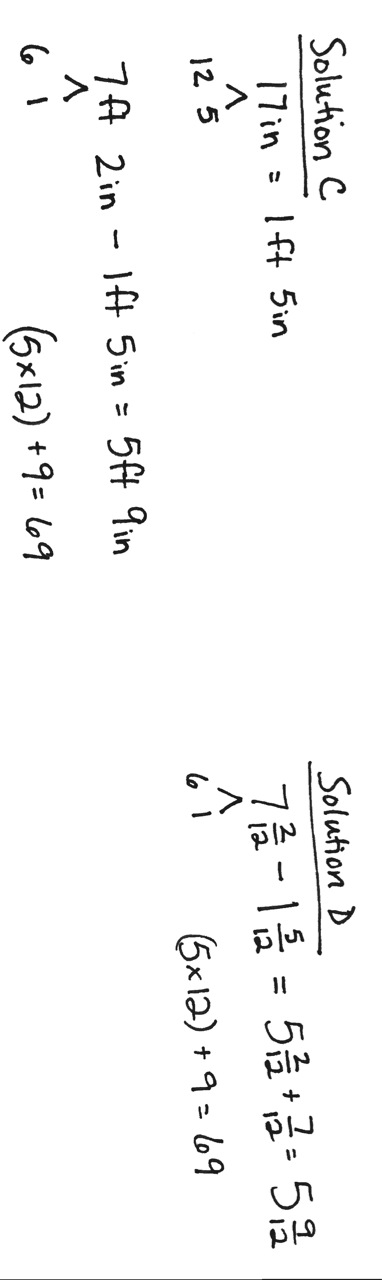 Solution C
17in = 1ft 5in
12 5
7ft 2in - 1ft 5in = 5ft 9in
6 1
(5×12) + 9 = 69
Solution D
7 2/12 - 1 5/12 = 5 2/12 + 7/12 = 5 9/12
6 1
(5×12) + 9 = 69